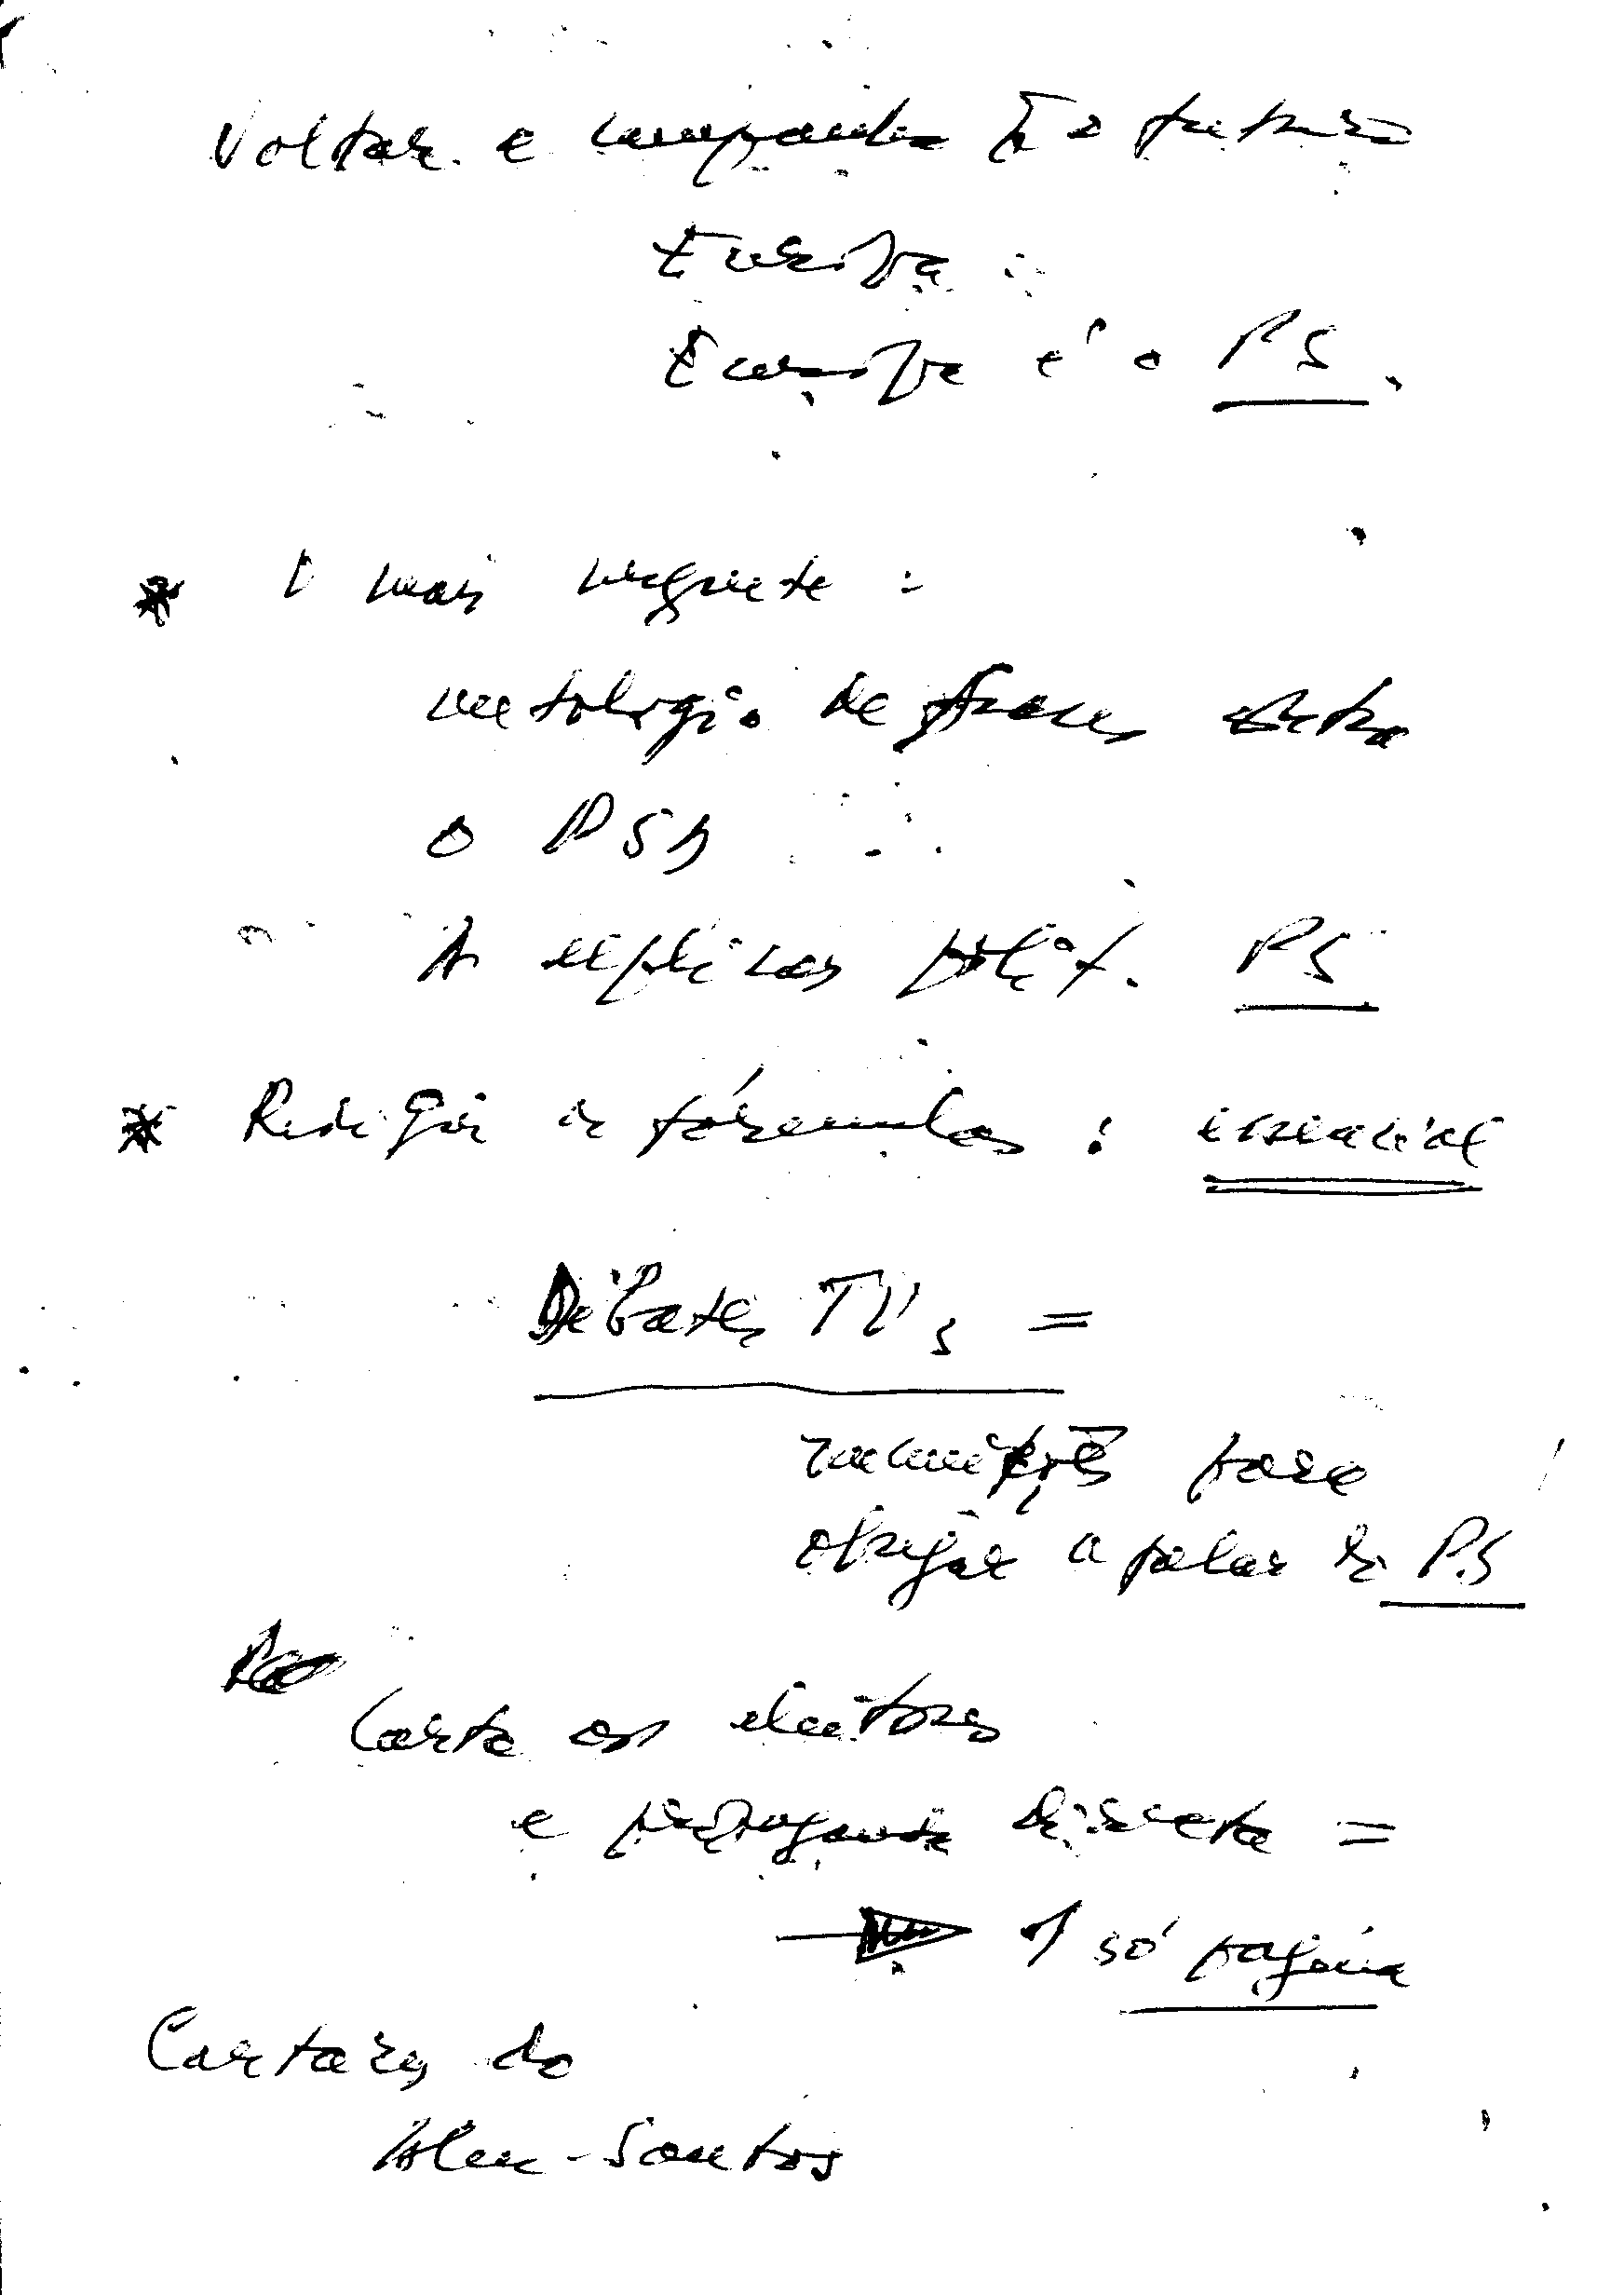 Voltar a campanha para o futuro
Europa
Europa é o PS.
* O mais urgente:
antologia de frases contra
o PSD
A explicar polit. PS
* Redigir as fórmulas: essencial
Debates TV's =
munições para
obrigar a falar do PS
Carta aos eleitores
e propaganda directa =
→ 1 só página
Cartazes do
Alen-Santos